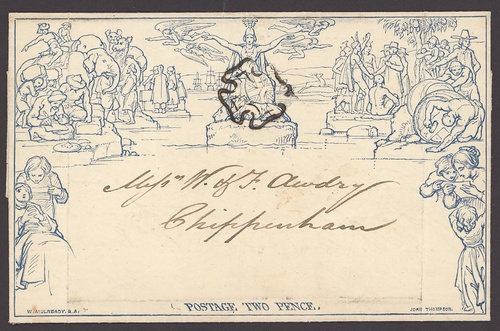 Messrs W. & F. Awdry
Chippenham
W. MULREADY, R.A.
POSTAGE TWO PENCE.
JOHN THOMPSON.